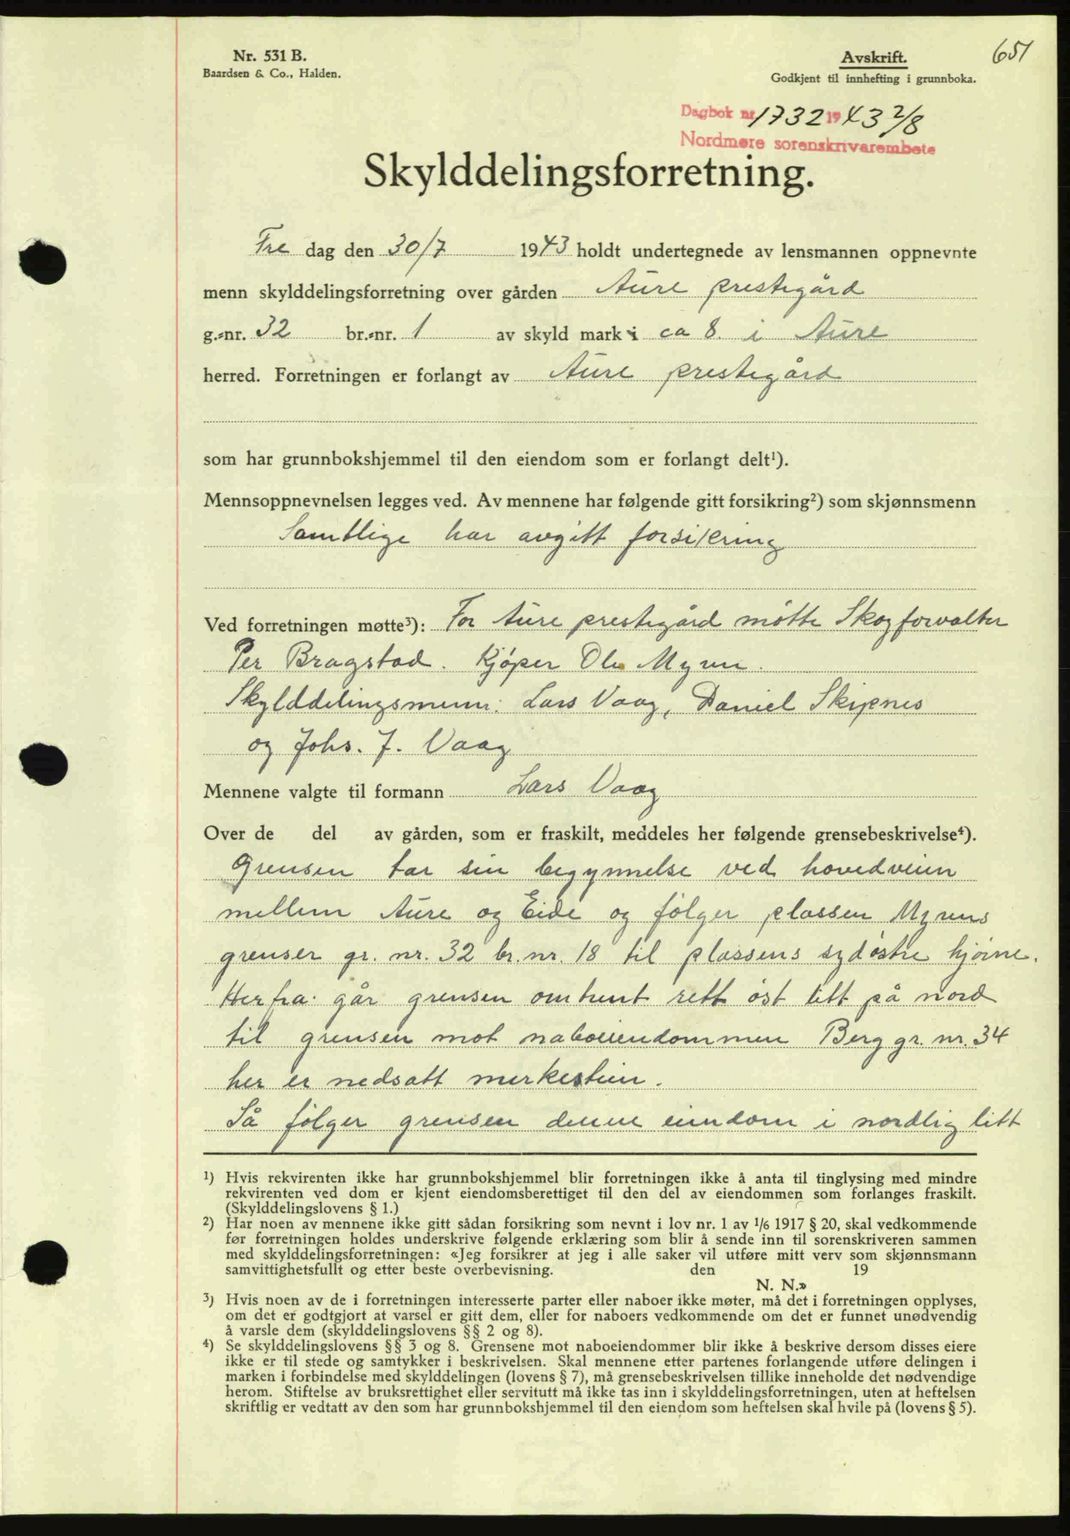 651
Nr. 531 B.
Baardsen & Co., Halden.
Avskrift.
Godkjent til innhefting i grunnboka.
Dagbok nr. 1732 19 43 2/8
Nordmøre sorenskrivarembete
Skylddelingsforretning.
Fre dag den 30/7 1943 holdt undertegnede av lensmannen oppnevnte
menn skylddelingsforretning over gården Aure prestegård
g.-nr. 32 br.-nr. 1 av skyld mark i ca 8. i Aure
herred. Forretningen er forlangt av Aure prestegård
som har grunnbokshjemmel til den eiendom som er forlangt delt¹).
Mennsoppnevnelsen legges ved. Av mennene har følgende gitt forsikring²) som skjønnsmenn
Samtlige har avgitt forsikring
Ved forretningen møtte³): For Aure prestegård møtte Skogforvalter
Per Bragstad. Kjøper Ole Myren.
Skylddelingsmenn: Lars Vaag, Daniel Skipnes
og Johs. J. Vaag
Mennene valgte til formann Lars Vaag
Over de del av gården, som er fraskilt, meddeles her følgende grensebeskrivelse⁴).
Grensen tar sin begynnelse ved hovedveien
mellem Aure og Eide og følger plassen Myrens
grenser gr. nr. 32 br. nr. 18 til plassens sydøstre hjørne.
Herfra går grensen omtrent rett øst litt på nord
til grensen mot naboeiendommen Berg gr. nr. 34
her er nedsatt merkestein.
Så følger grensen denne eiendom i nordlig litt
¹) Hvis rekvirenten ikke har grunnbokshjemmel blir forretningen ikke å anta til tinglysing med mindre
rekvirenten ved dom er kjent eiendomsberettiget til den del av eiendommen som forlanges fraskilt.
(Skylddelingslovens § 1.)
²) Har noen av mennene ikke gitt sådan forsikring som nevnt i lov nr. 1 av 1/6 1917 § 20, skal vedkommende
før forretningen holdes underskrive følgende erklæring som blir å sende inn til sorenskriveren sammen
med skylddelingsforretningen: «Jeg forsikrer at jeg i alle saker vil utføre mitt verv som skjønnsmann
samvittighetsfullt og etter beste overbevisning. den 19
N. N.»
³) Hvis noen av de i forretningen interesserte parter eller naboer ikke møter, må det i forretningen opplyses,
om det er godtgjort at varsel er gitt dem, eller for naboers vedkommende om det er funnet unødvendig
å varsle dem (skylddelingslovens §§ 2 og 8).
⁴) Se skylddelingslovens §§ 3 og 8. Grensene mot naboeiendommer blir ikke å beskrive dersom disses eiere
ikke er til stede og samtykker i beskrivelsen. Skal mennene etter partenes forlangende utføre delingen i
marken i forbindelse med skylddelingen (lovens § 7), må grensebeskrivelsen tillike inneholde det nødvendige
herom. Stiftelse av bruksrettighet eller servitutt må ikke tas inn i skylddelingsforretningen, uten at heftelsen
skriftlig er vedtatt av den som har grunnbokshjemmel til den eiendom som heftelsen skal hvile på (lovens § 5).